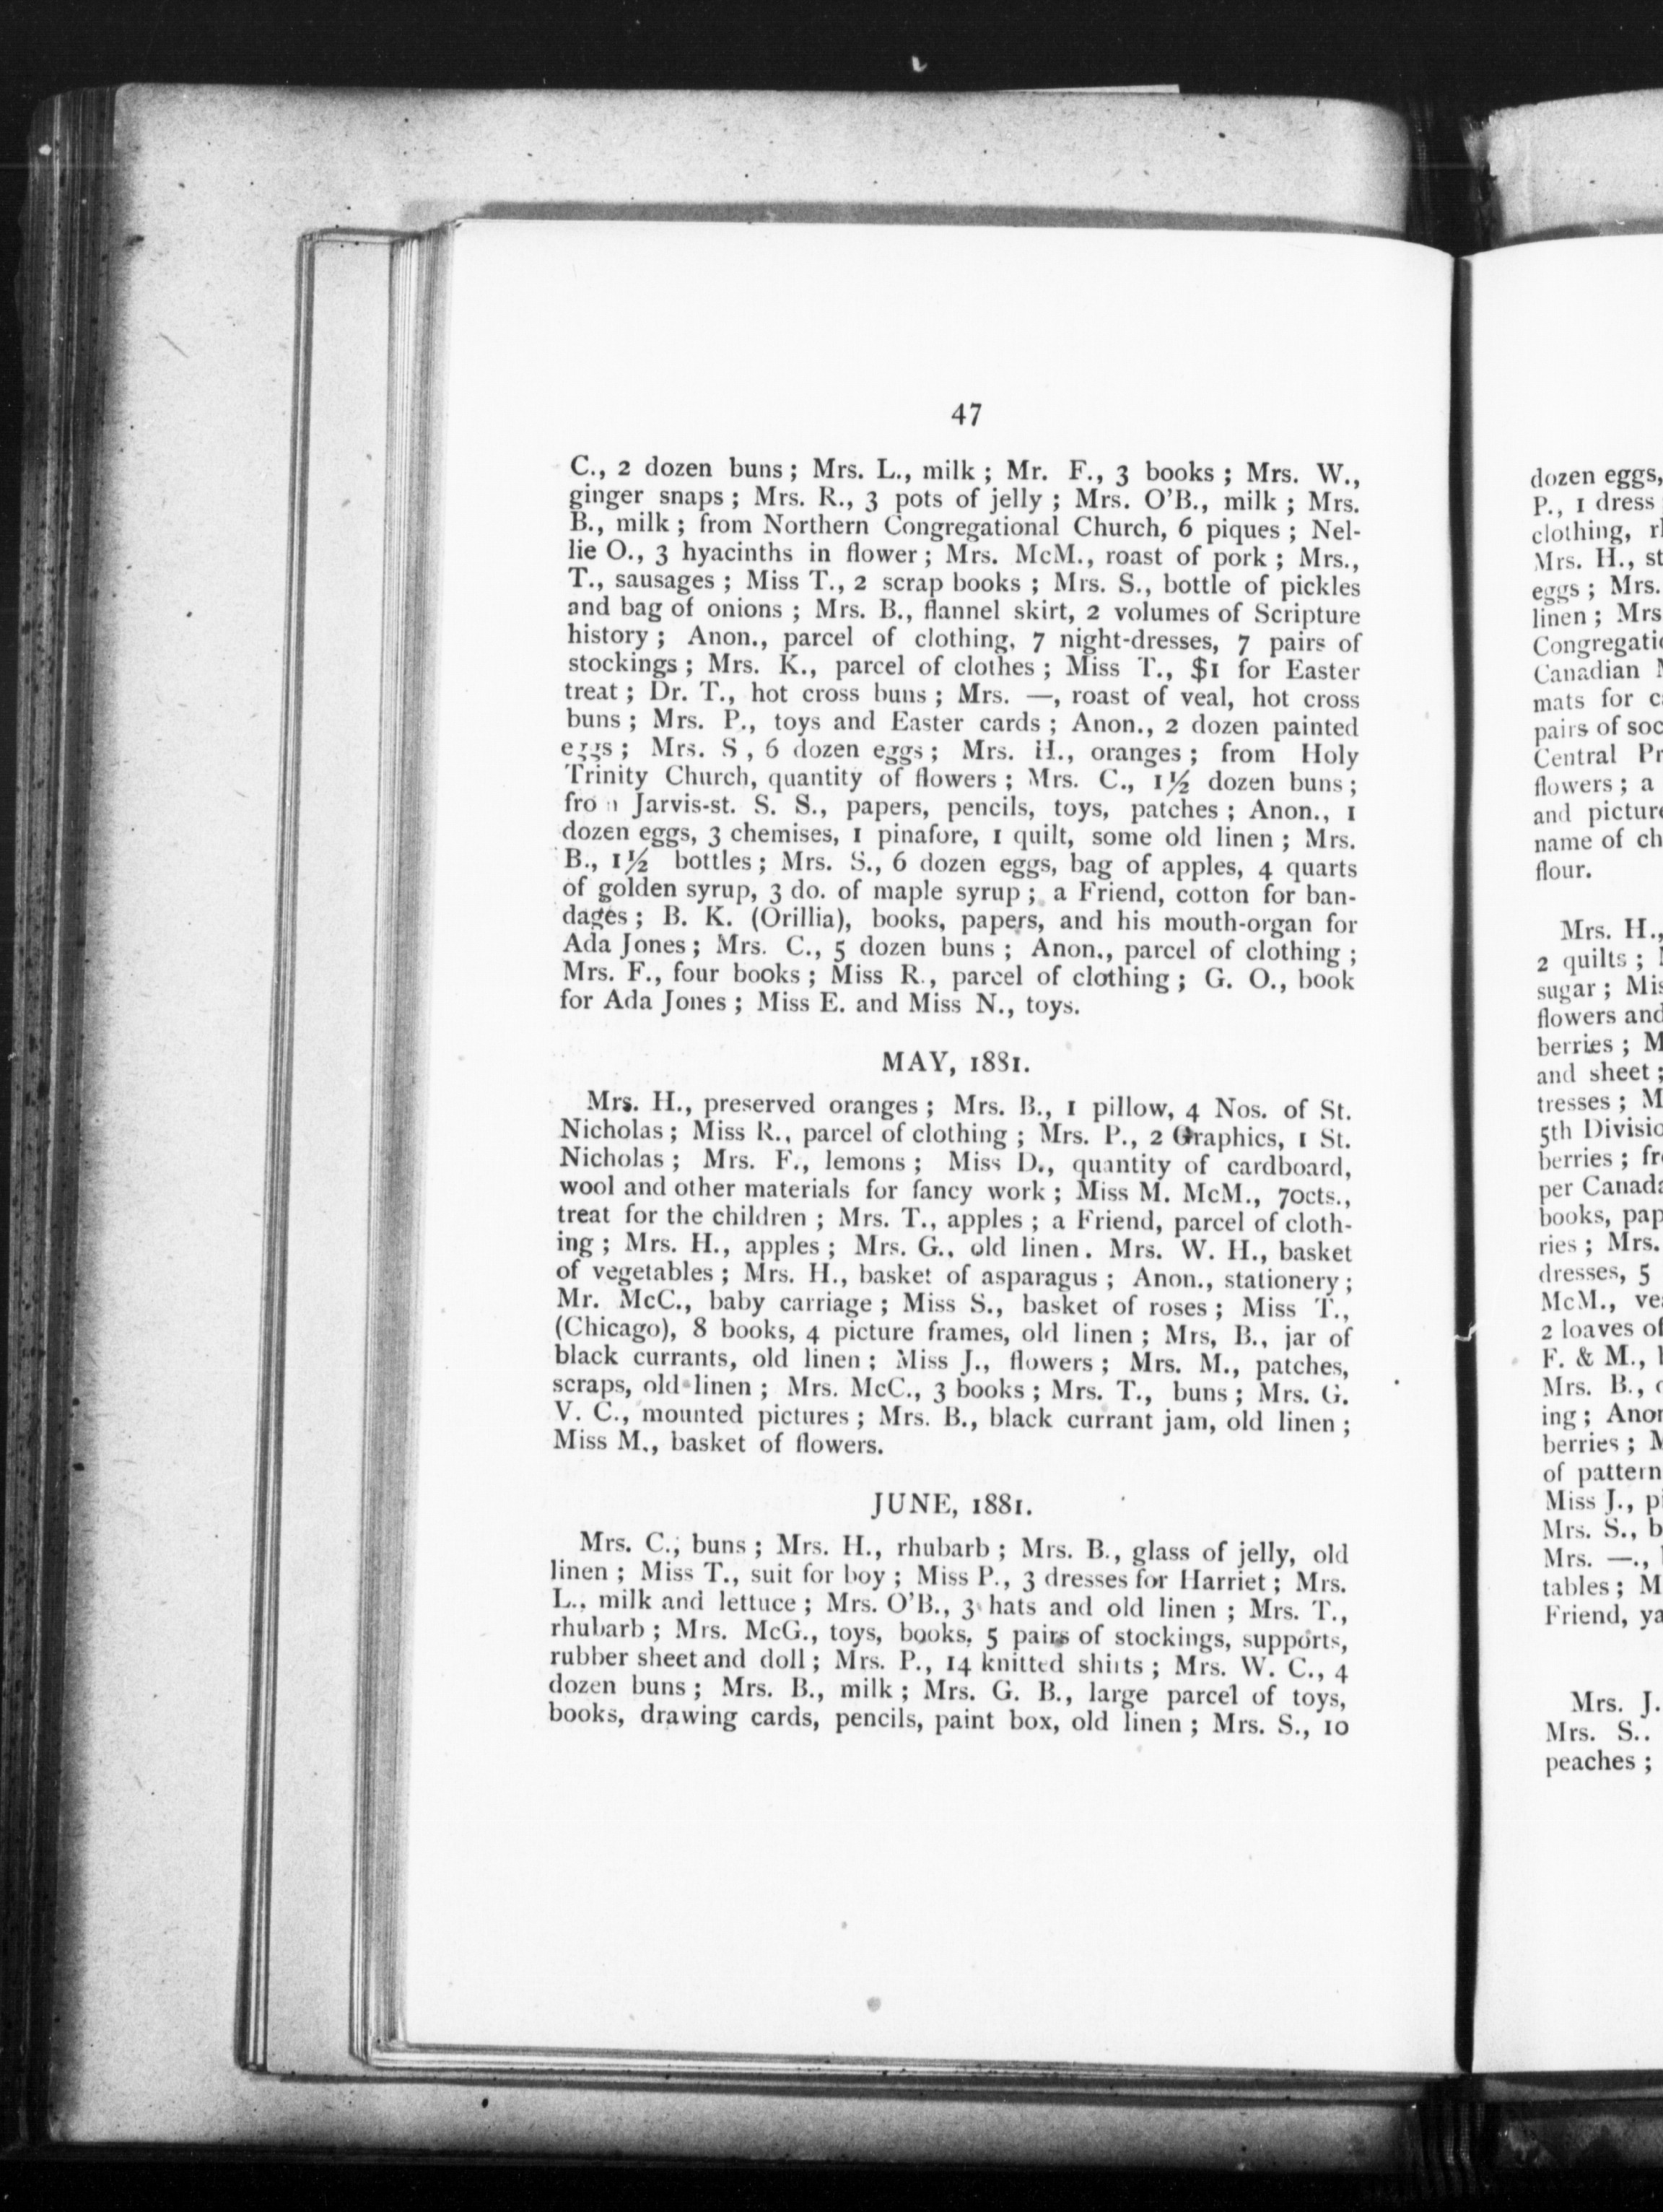 47
C., 2 dozen buns ; Mrs. L., milk ; Mr. F., 3 books ; Mrs. W.,
ginger snaps ; Mrs. R., 3 pots of jelly ; Mrs. O'B., milk ; Mrs.
B., milk ; from Northern Congregational Church, 6 piques ; Nel-
lie O., 3 hyacinths in flower ; Mrs. McM., roast of pork ; Mrs.,
T., sausages ; Miss T., 2 scrap books ; Mrs. S., bottle of pickles
and bag of onions ; Mrs. B., flannel skirt, 2 volumes of Scripture
history ; Anon., parcel of clothing, 7 night-dresses, 7 pairs of
stockings ; Mrs. K., parcel of clothes ; Miss T., $1 for Easter
treat ; Dr. T., hot cross buns ; Mrs. —, roast of veal, hot cross
buns ; Mrs. P., toys and Easter cards ; Anon., 2 dozen painted
eggs ; Mrs. S , 6 dozen eggs ; Mrs. H., oranges ; from Holy
Trinity Church, quantity of flowers ; Mrs. C., 1½ dozen buns ;
from Jarvis-st. S. S., papers, pencils, toys, patches ; Anon., 1
dozen eggs, 3 chemises, 1 pinafore, 1 quilt, some old linen ; Mrs.
B., 1½ bottles ; Mrs. S., 6 dozen eggs, bag of apples, 4 quarts
of golden syrup, 3 do. of maple syrup ; a Friend, cotton for ban-
dages ; B. K. (Orillia), books, papers, and his mouth-organ for
Ada Jones ; Mrs. C., 5 dozen buns ; Anon., parcel of clothing ;
Mrs. F., four books ; Miss R., parcel of clothing ; G. O., book
for Ada Jones ; Miss E. and Miss N., toys.
MAY, 1881.
Mrs. H., preserved oranges ; Mrs. B., 1 pillow, 4 Nos. of St.
Nicholas ; Miss R., parcel of clothing ; Mrs. P., 2 Graphics, 1 St.
Nicholas ; Mrs. F., lemons ; Miss D., quantity of cardboard,
wool and other materials for fancy work ; Miss M. McM., 70cts.,
treat for the children ; Mrs. T., apples ; a Friend, parcel of cloth-
ing ; Mrs. H., apples ; Mrs. G., old linen. Mrs. W. H., basket
of vegetables ; Mrs. H., basket of asparagus ; Anon., stationery ;
Mr. McC., baby carriage ; Miss S., basket of roses ; Miss T.,
(Chicago), 8 books, 4 picture frames, old linen ; Mrs, B., jar of
black currants, old linen ; Miss J., flowers ; Mrs. M., patches,
scraps, old linen ; Mrs. McC., 3 books ; Mrs. T., buns ; Mrs. G.
V. C., mounted pictures ; Mrs. B., black currant jam, old linen ;
Miss M., basket of flowers.
JUNE, 1881.
Mrs. C., buns ; Mrs. H., rhubarb ; Mrs. B., glass of jelly, old
linen ; Miss T., suit for boy ; Miss P., 3 dresses for Harriet ; Mrs.
L., milk and lettuce ; Mrs. O'B., 3 hats and old linen ; Mrs. T.,
rhubarb ; Mrs. McG., toys, books, 5 pairs of stockings, supports,
rubber sheet and doll ; Mrs. P., 14 knitted shirts ; Mrs. W. C., 4
dozen buns ; Mrs. B., milk ; Mrs. G. B., large parcel of toys,
books, drawing cards, pencils, paint box, old linen ; Mrs. S., 10
dozen eggs,
P., 1 dress
clothing,
Mrs. H.,
eggs ; Mrs.
linen ; Mrs
Canadian
mats for
pairs of
Central
flowers ; a
and
name of
flour.
Mrs. H.,
2 quilts ;
sugar ;
flowers and
berries ;
and sheet ;
tresses ;
5th
berries ;
per
books,
ries ; Mrs.
dresses, 5
McM.,
2 loaves of
F. & M.,
Mrs. B.,
ing ;
berries ;
of
Miss J.,
Mrs. S.,
Mrs. —.,
tables ;
Friend,
Mrs. J.
Mrs. S..
peaches ;